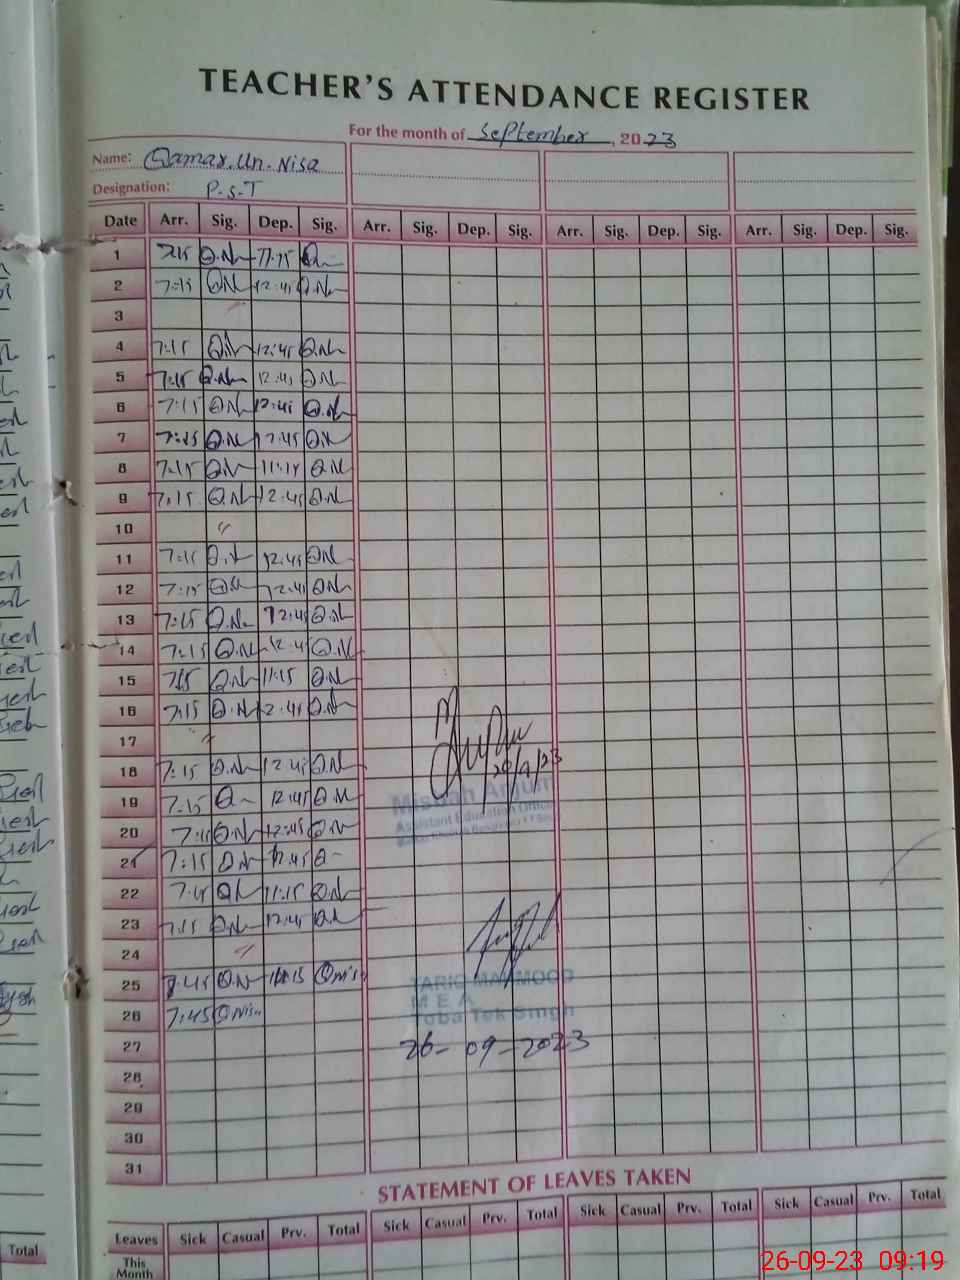 TEACHER'S ATTENDANCE REGISTER
For the month of September, 2023
Name: Qamar.un.Nisa
Designation: P-S-T
Date Arr. Sig. Dep. Sig. Arr. Sig. Dep. Sig. Arr. Sig. Dep. Sig. Arr. Sig. Dep. Sig.
1 7:15 Q.N 11:15
2 7:15 Q.N 12:45 Q.N
3
4 7:15 Q.N 12:45 Q.N
5 7:15 Q.N 12:45 Q.N
6 7:15 Q.N 12:45 Q.N
7 7:15 Q.N 12:45 Q.N
8 7:15 Q.N 11:15 Q.N
9 7:15 Q.N 12:45 Q.N
10 "
11 7:15 Q.N 12:45 Q.N
12 7:15 Q.N 12:45 Q.N
13 7:15 Q.N 12:45 Q.N
14 7:15 Q.N 12:45 Q.N
15 7:15 Q.N 11:15 Q.N
16 7:15 Q.N 12:45 Q.N
17 "
18 7:15 Q.N 12:45 Q.N
20/9/23
19 7:15 12:45 Q.N
Misbah Anjum
Assistant Education Officer
20 7:15 Q.N 12:45 Q.N
21 7:15 Q.N 12:45
22 7:15 Q.N 11:15 Q.N
23 7:15 Q.N 12:45 Q.N
24 "
25 7:45 Q.N Q.nisa
TARIQ MAHMOOD
M E A
26 7:45 Q.nisa
Toba Tek Singh
27 26-09-2023
28
29
30
31
STATEMENT OF LEAVES TAKEN
Leaves Sick Casual Prv. Total Sick Casual Prv. Total Sick Casual Prv. Total Sick Casual Prv. Total
This Month
Total
26-09-23 09:19